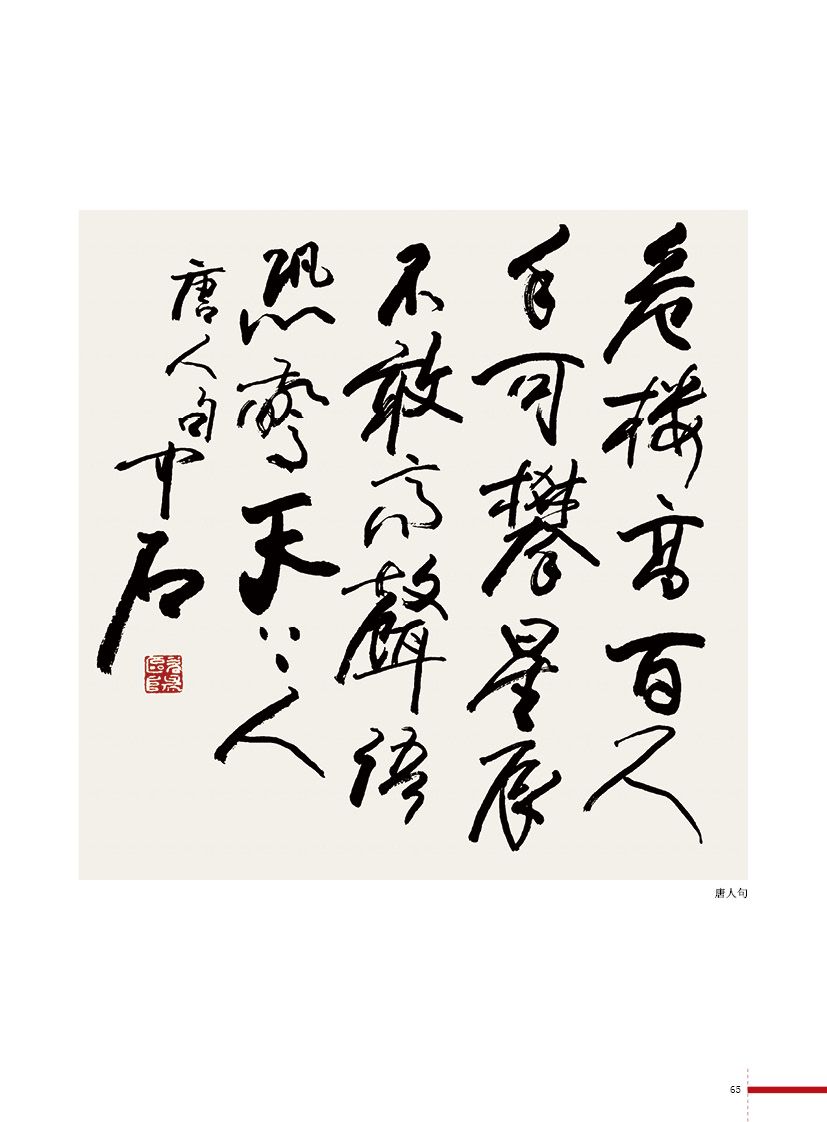 危楼高百尺
手可攀星辰
不敢高聲語
恐驚天上人
唐人句中石
唐人句
65